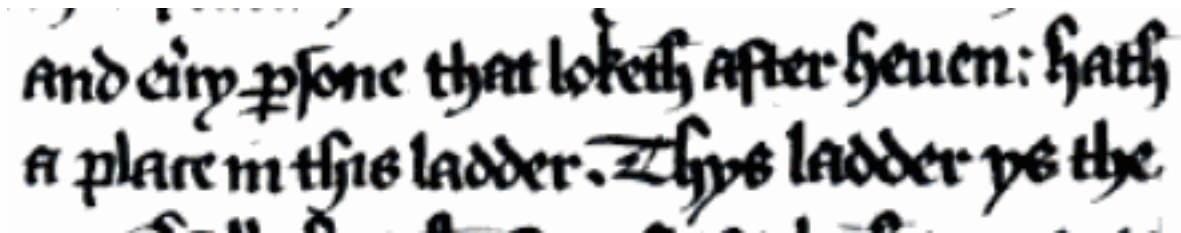 and eu'y ꝑsone that loketh after heuen: hath
a place in this ladder. Thys ladder ys the